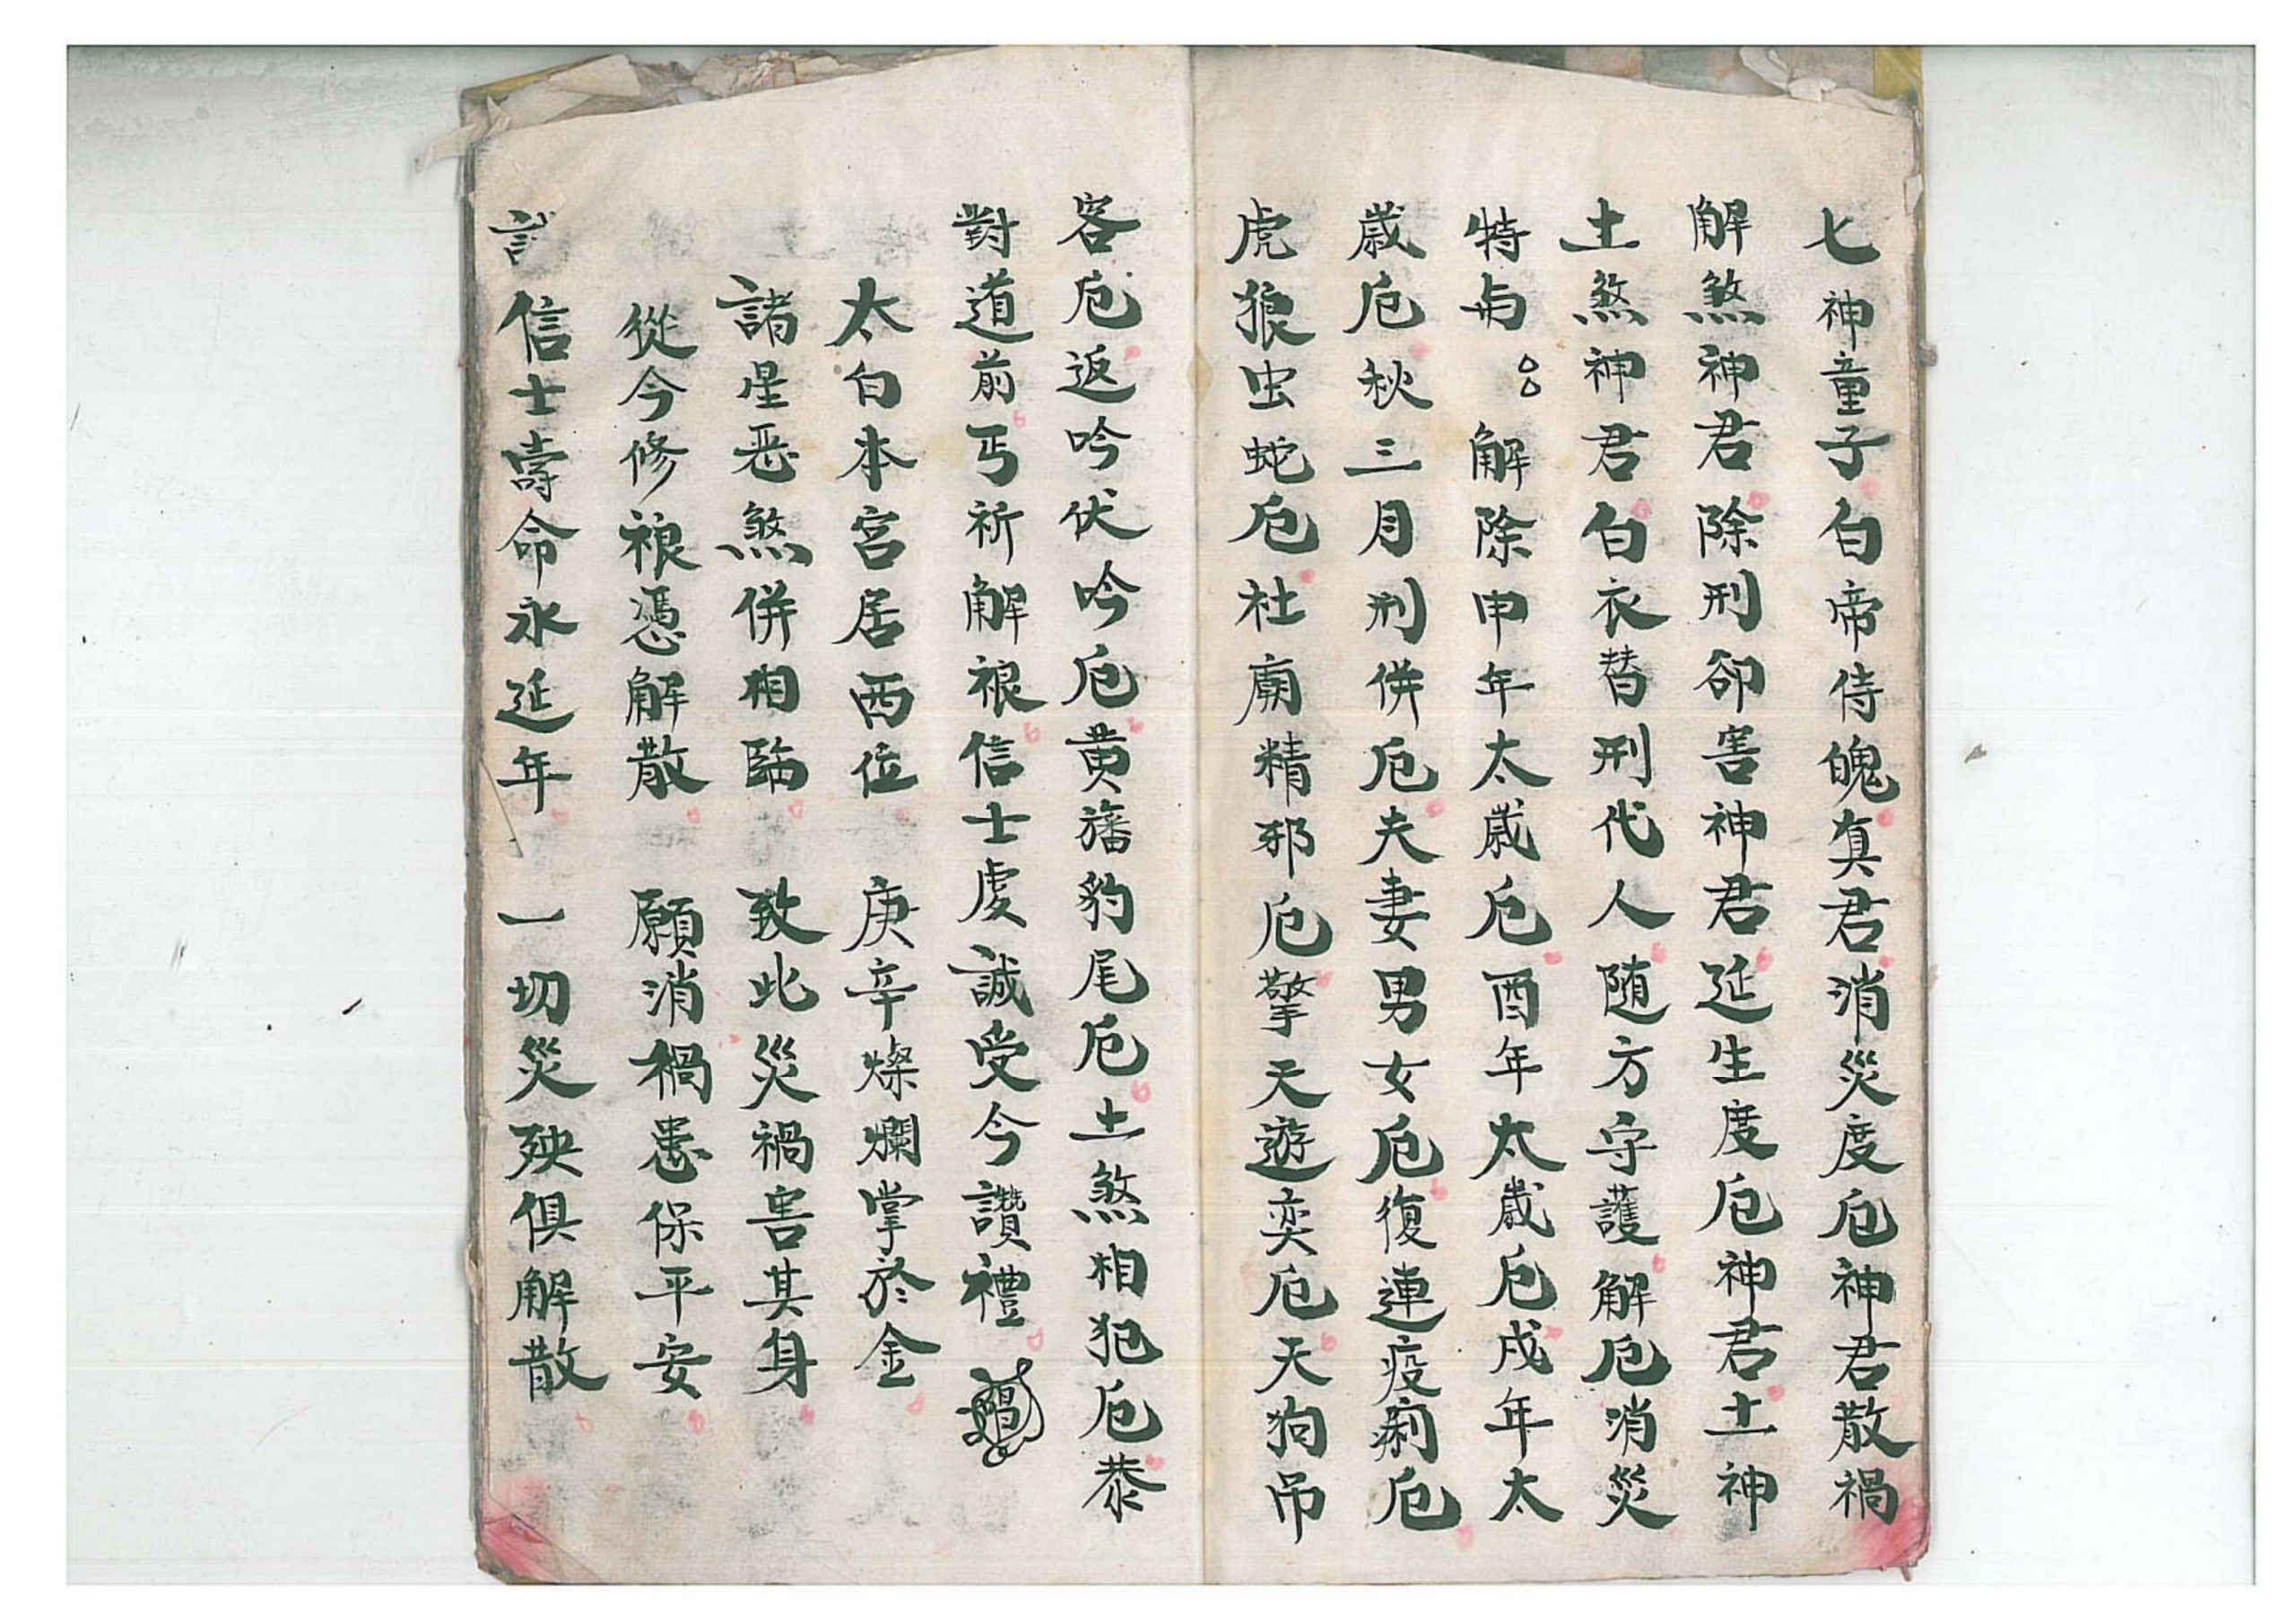 七神童子白帝侍魄真君消災度厄神君散禍
解煞神君除刑卻害神君延生度厄神君土神
土煞神君白衣替刑代人随方守護解厄消災
特与 解除申年太歲厄酉年太歲厄戌年太
歲厄秋三月刑併厄夫妻男女厄復連疫痢厄
虎狼虫蛇厄社廟精邪厄擎天遊奕厄天狗吊
客厄返吟伏吟厄黄旛豹尾厄土煞相犯厄恭
對道前丐祈解禳信士虔誠受今讚禮
太白本宮居西位 庚辛燦爛掌於金
諸星恶煞併相臨 致此災禍害其身
從今修禳憑解散 願消禍患保平安
信士壽命永延年 一切災殃俱解散